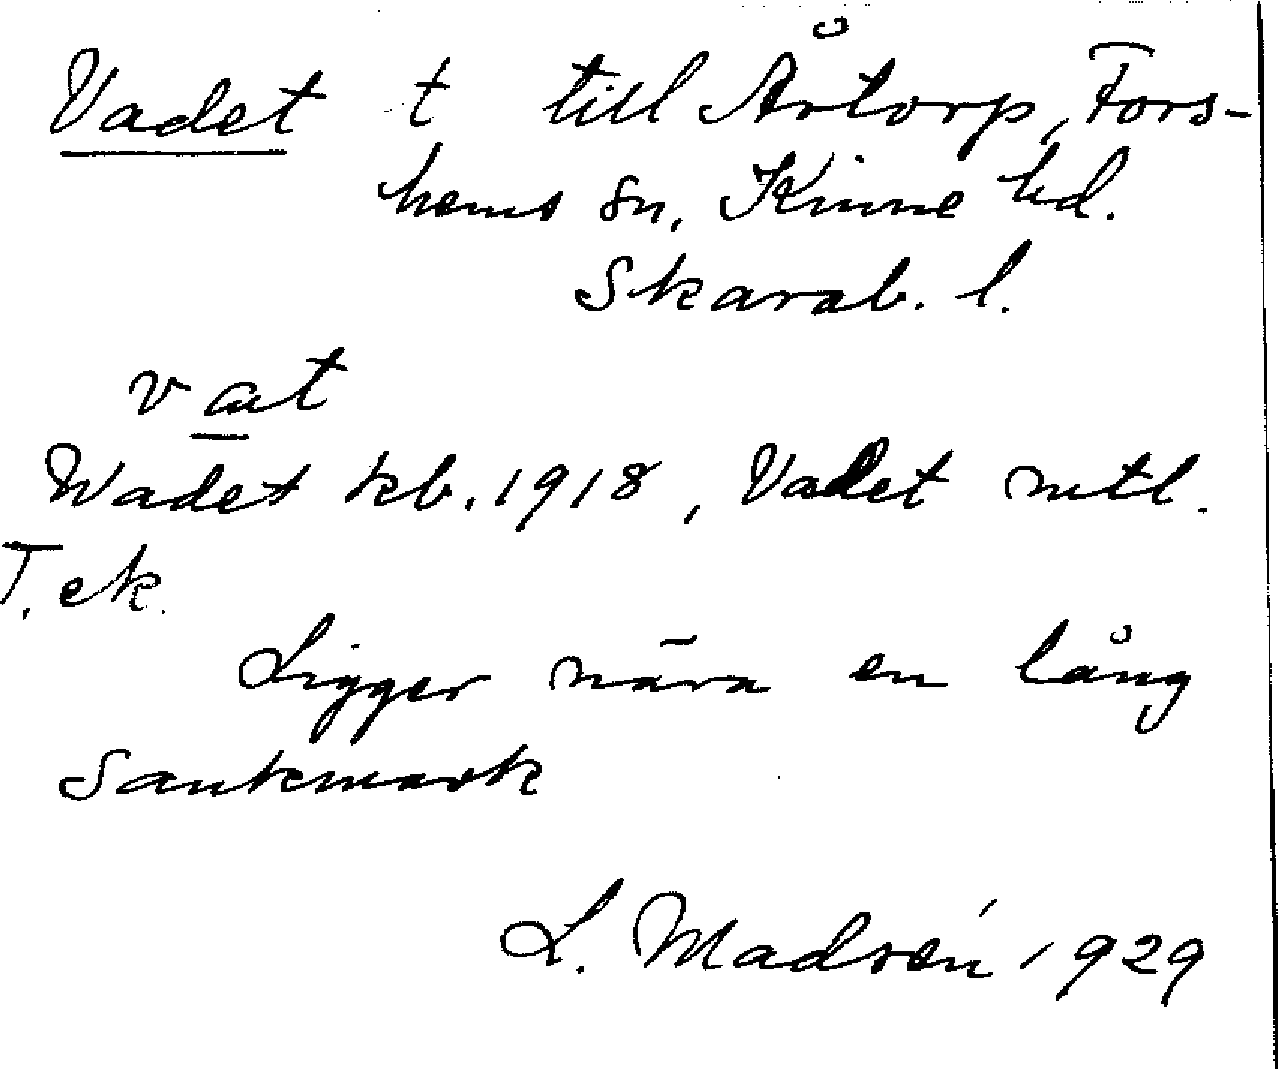 Vadet t till Årtorp, Fors-
hems sn, Kinne hd.
Skarab. l.
vat
Wadet kb. 1918, Vadet mtl.
T. ek.
Ligger nära en lång
Sankmark
L. Madsén 1929